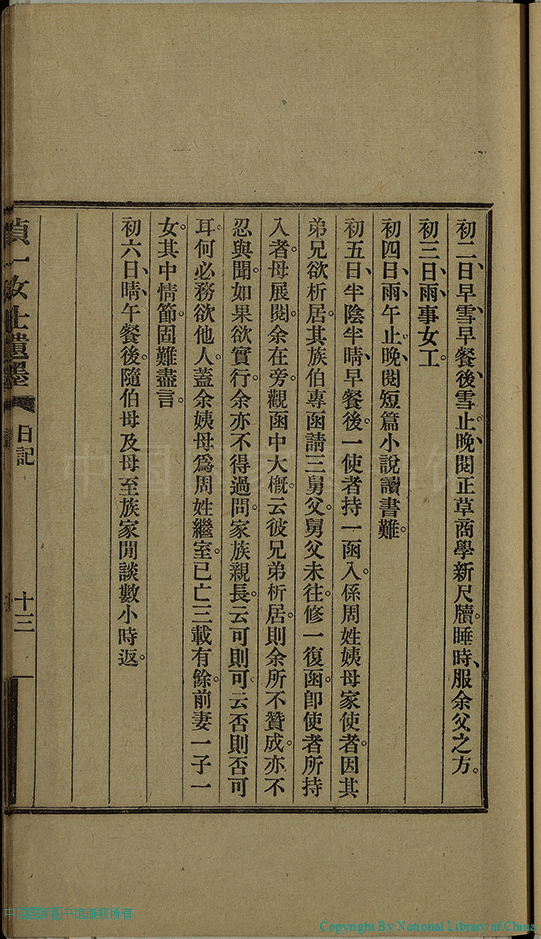 初二日、早雪、早餐後雪止、晚閱正草商學新尺牘。睡時、服余父之方。
初三日、雨、事女工。
初四日、雨、午止、晚閱短篇小說讀書難。
初五日、半陰半晴、早餐後。一使者持一函入。係周姓姨母家使者。因其
弟兄欲析居。其族伯專函請三舅父。舅父未往。修一復函。卽使者所持
入者。母展閱。余在旁觀。函中大槪云彼兄弟析居。則余所不贊成。亦不
忍與聞。如果欲實行。余亦不得過問。家族親長。云可則可。云否則否可
耳。何必務欲他人。蓋余姨母爲周姓繼室。已亡三載有餘。前妻一子一
女。其中情節。固難盡言。
初六日、晴、午餐後。隨伯母及母至族家閒談數小時返。
貞一女士遺墨 日記 十三
Copyright By National Library of China